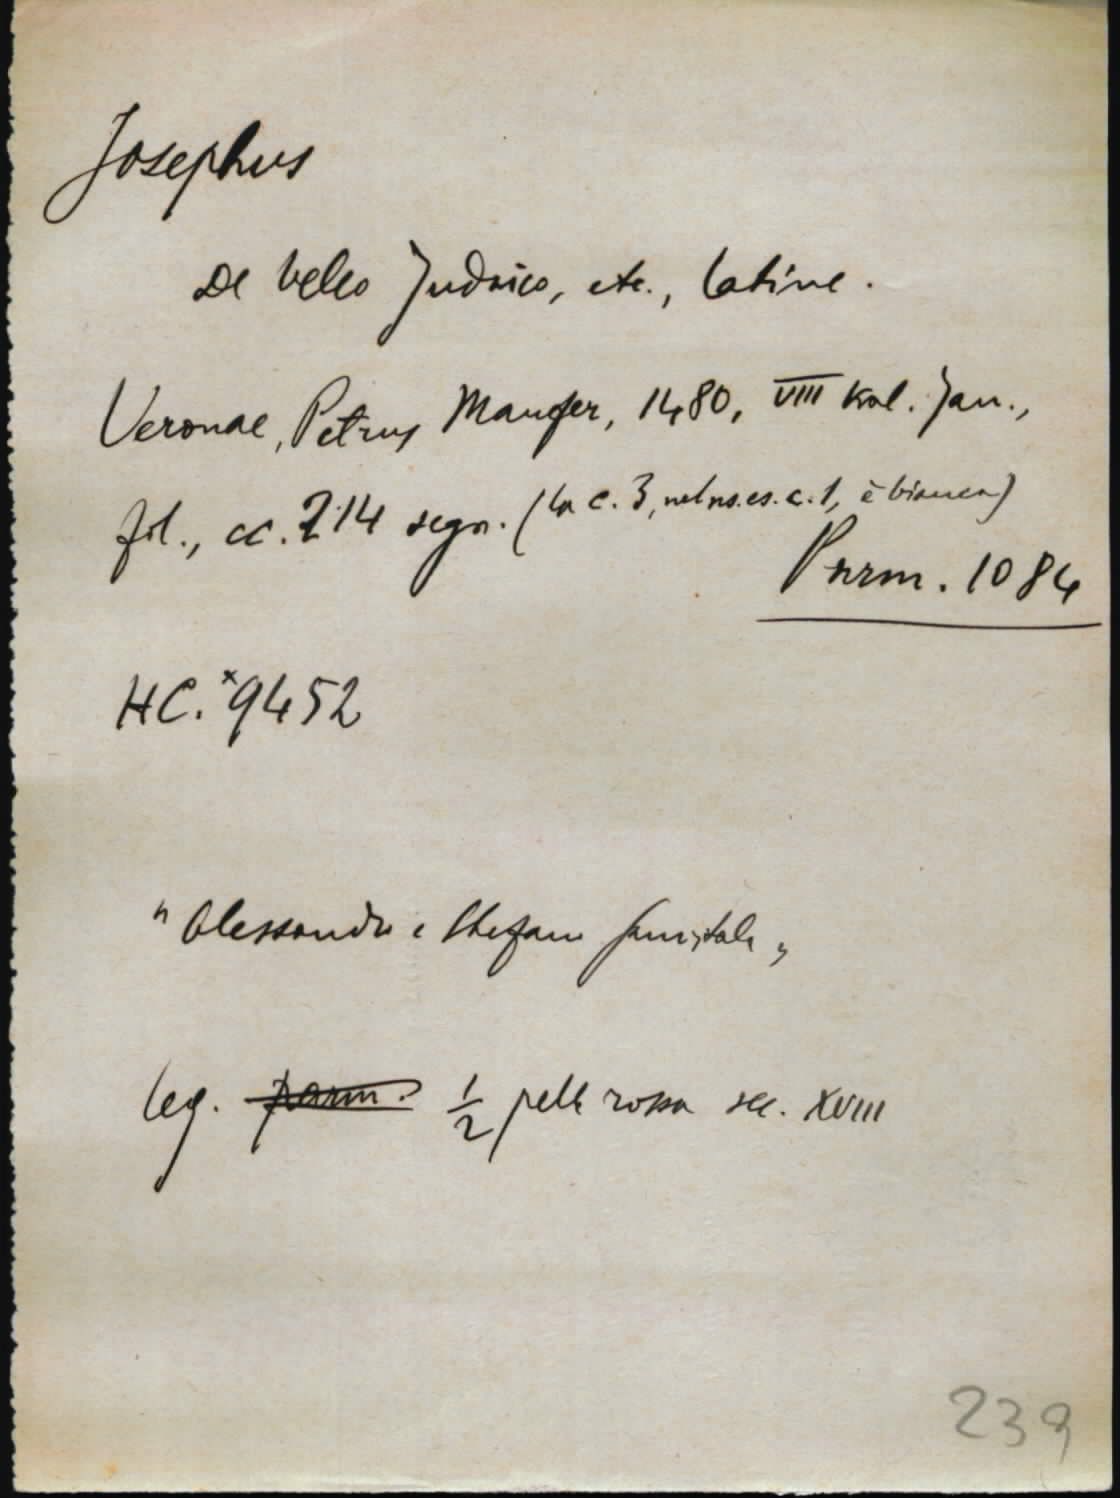 Josephus
De bello Judaico, etc., latine.
Veronae, Petrus Maufer, 1480, VIII kal. Jan.,
fol., cc. 214 segn. (la c. 3, nel ns. es. c. 1, è bianca)
Parm. 1084
HC. *9452
"Alessandro e Stefano Sanvitale"
leg. parm. 1/2 pelle rossa sec. XVIII
239